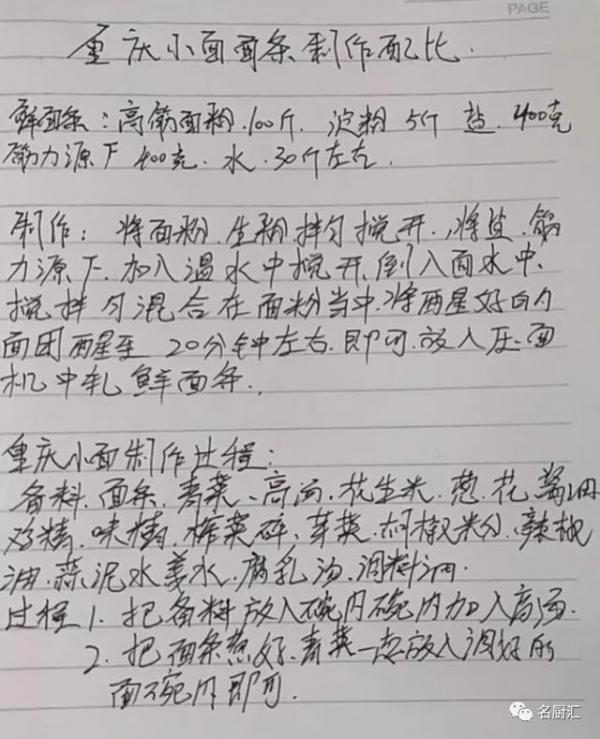 PAGE
重庆小面面条制作配比.
鲜面条:高筋面粉.100斤.淀粉 5斤 盐.400克
筋力源下 400克.水.30斤左右.
制作:将面粉.生粉.拌匀搅开.将盐.筋
力源下.加入温水中搅开.倒入面水中.
搅拌匀混合在面粉当中.将醒好的
面团醒至 20分钟左右.即可.放入压面
机中轧鲜面条.
重庆小面制作过程:
备料.面条.青菜、高汤.花生米.葱.花酱油
鸡精.味精.榨菜碎、芽菜.花椒粉.辣椒
油.蒜泥水姜水.腐乳汤.调料油.
过程1.把备料放入碗内碗内加入高汤.
2.把面条煮好.青菜一起放入调好的
面碗内即可.
名厨汇